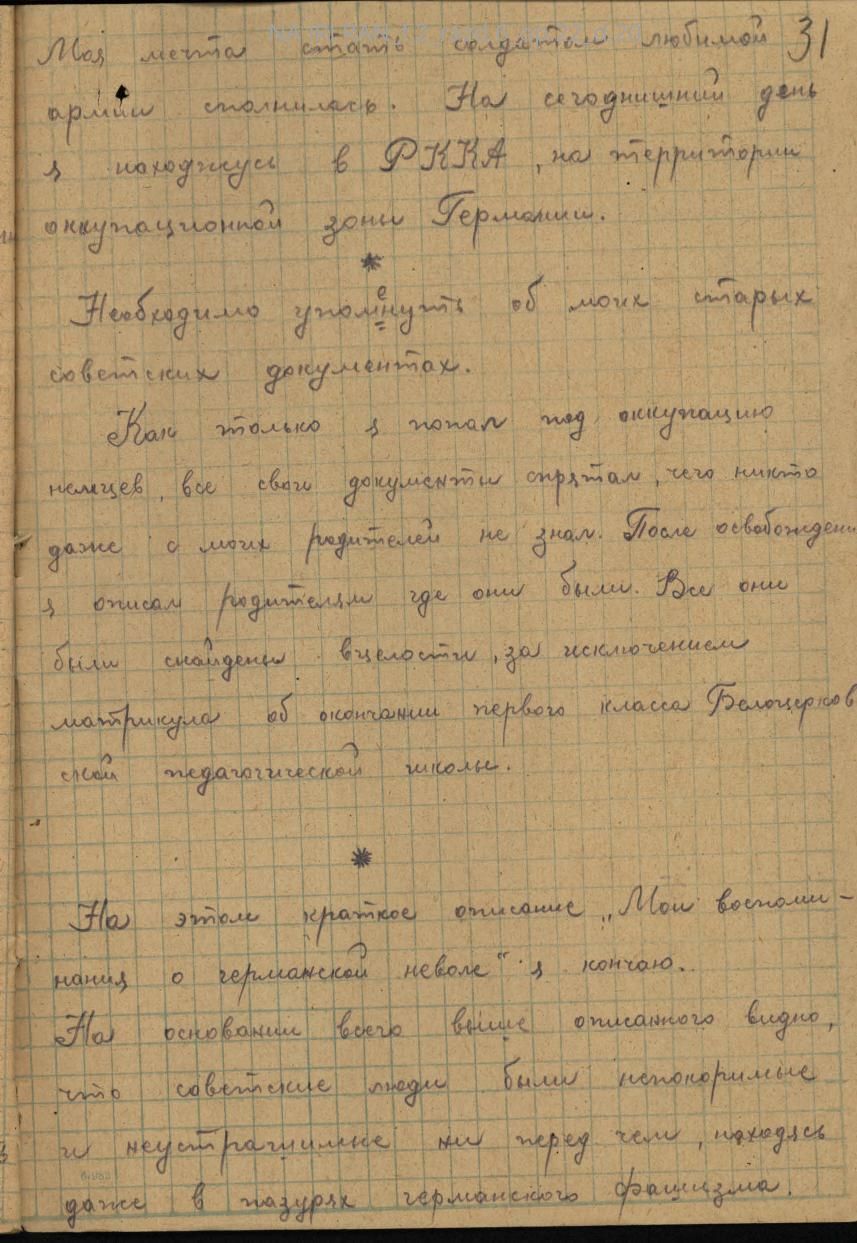 31
Моя мечта стать солдатом любимой
армии сполнилась. На сегоднишний день
я нахожусь в РККА, на территории
оккупационной зоны Германии.
Необходимо упоменуть об моих старых
советских документах.
Как только я попал под оккупацию
немцев, все свои документы спрятал, чего никто
даже с моих родителей не знал. После освобождени
я описал родителям где они были. Все они
были снайдены вцелости, за исключением
матрикула об окончании первого класса Белоцерков
ской педагогической школы.
На этом краткое описание „Мои воспоми-
нания о германской неволе" я кончаю.
На основании всего выше описанного видно,
что советские люди были непокоримые
и неустрашимые ни перед чем, находясь
даже в пазурях германского фашизма.